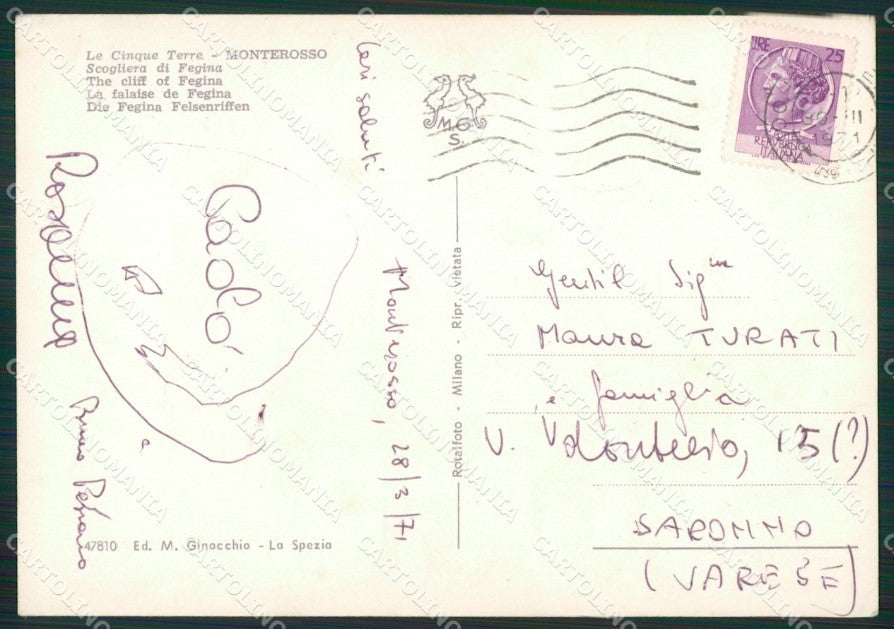 Le Cinque Terre - MONTEROSSO
Scogliera di Fegina
The cliff of Fegina
La falaise de Fegina
Die Fegina Felsenriffen
Cari saluti
Monterosso, 28/3/71
Paolo
Bruno
M.G.
S.
LIRE 25
REPVBBLICA
ITALIANA
1971
Gentil Sig.na
Maura TURATI
e famiglia
V. Volonterio, 15 (?)
SARONNO
(VARESE)
Rotalfoto - Milano - Ripr. vietata
47810 Ed. M. Ginocchio - La Spezia
CARTOLINOMANIA